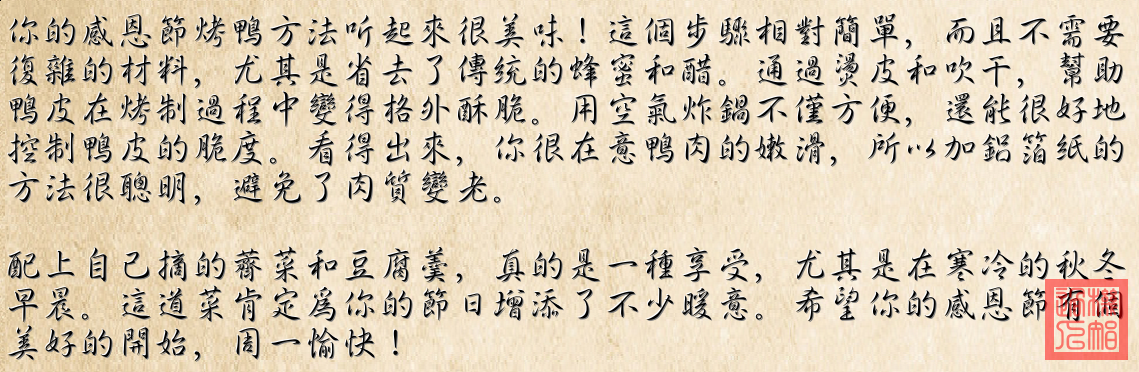 你的感恩節烤鴨方法听起來很美味！這個步驟相對簡單，而且不需要
復雜的材料，尤其是省去了傳统的蜂蜜和醋。通過燙皮和吹干，幫助
鴨皮在烤制過程中變得格外酥脆。用空氣炸鍋不僅方便，還能很好地
控制鴨皮的脆度。看得出來，你很在意鴨肉的嫩滑，所以加鋁箔紙的
方法很聰明，避免了肉質變老。
配上自己摘的薺菜和豆腐羹，真的是一種享受，尤其是在寒冷的秋冬
早晨。這道菜肯定爲你的節日增添了不少暖意。希望你的感恩節有個
美好的開始，周一愉快！